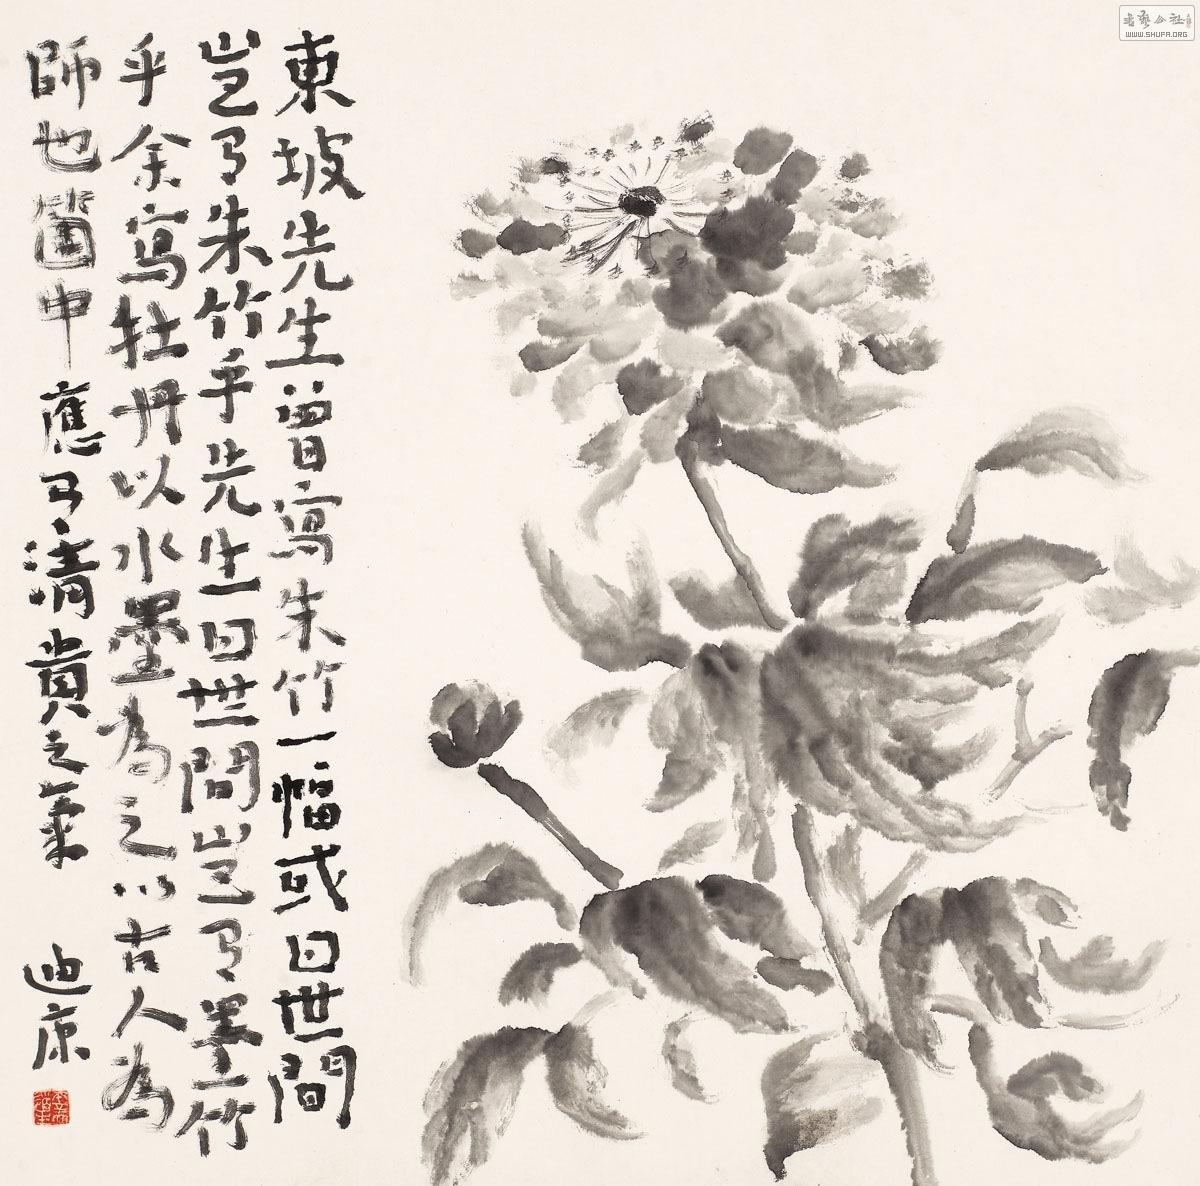 東坡先生曾寫朱竹一幅或曰世間
豈有朱竹乎先生曰世間豈有墨竹
乎余寫牡丹以水墨為之以古人為
師也箇中應有清貴之氣 迪康
書藝公社
WWW.SHUFA.ORG